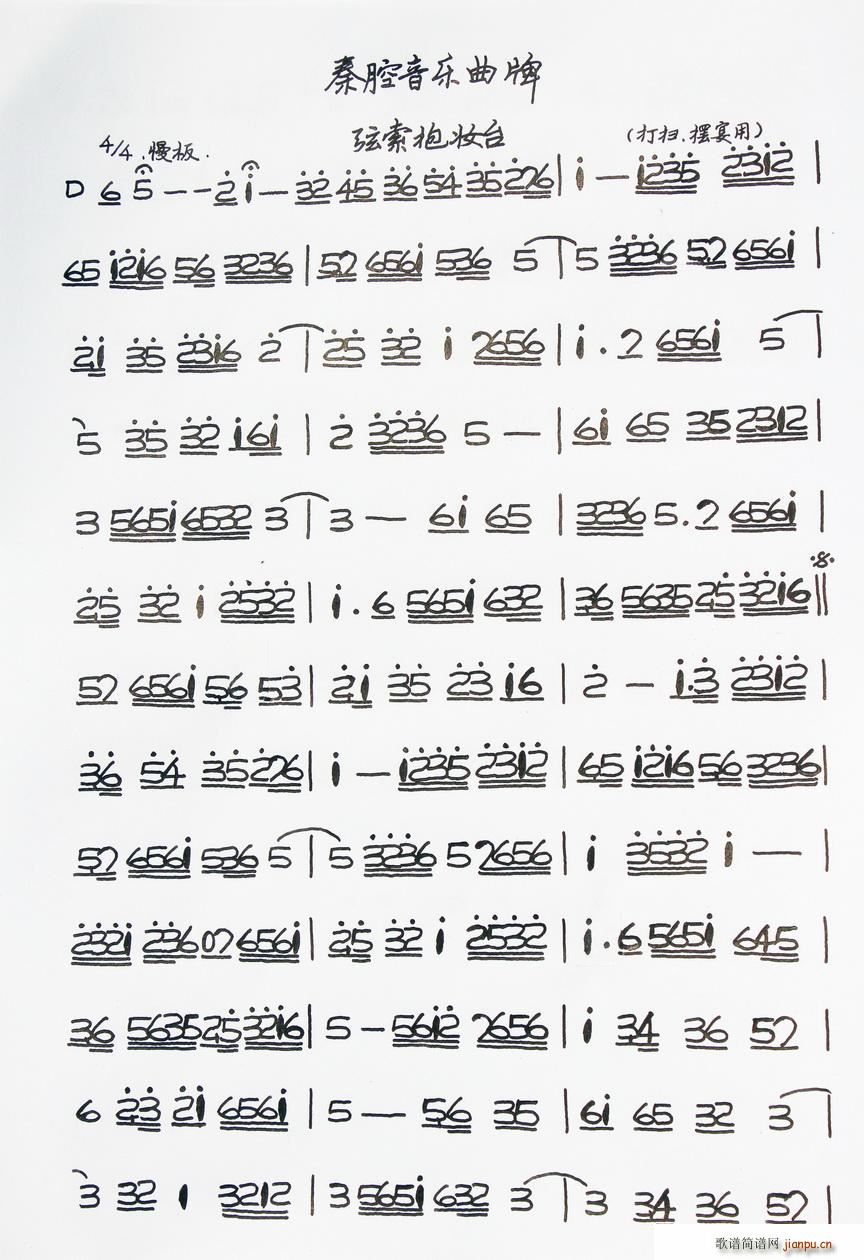 秦腔音乐曲牌
弦索抱妆台
4/4.慢板.
(打扫.摆宴用)
D 6 5 - - 2 i — 32 45 36 54 35 276 | i — i235 23i2 |
65 i2i6 56 3236 | 57 656i 536 5 | 5 3236 57 656i |
2i 35 23i6 2 | 25 32 i 7656 | i . 7 656i 5 |
5 35 32 i6i | 2 3236 5 — | 6i 65 35 23i2 |
3 565i 6532 3 | 3 — 6i 65 | 3236 5.7 656i |
25 32 i 2532 | i . 6 565i 632 | 36 5635 25 32i6 ||
57 656i 56 53 | 2i 35 23 i6 | 2 — i.3 23i2 |
36 54 35 276 | i — i235 23i2 | 65 i2i6 56 3236 |
57 656i 536 5 | 5 3236 5 7656 | i 3532 i — |
232i 236 07 656i | 25 32 i 2532 | i . 6 565i 645 |
36 5635 25 32i6 | 5 — 56i2 7656 | i 34 36 57 |
6 23 2i 656i | 5 — 56 35 | 6i 65 32 3 |
3 32 1 3212 | 3 565i 632 3 | 3 34 36 57 |
歌谱简谱网 jianpu.cn